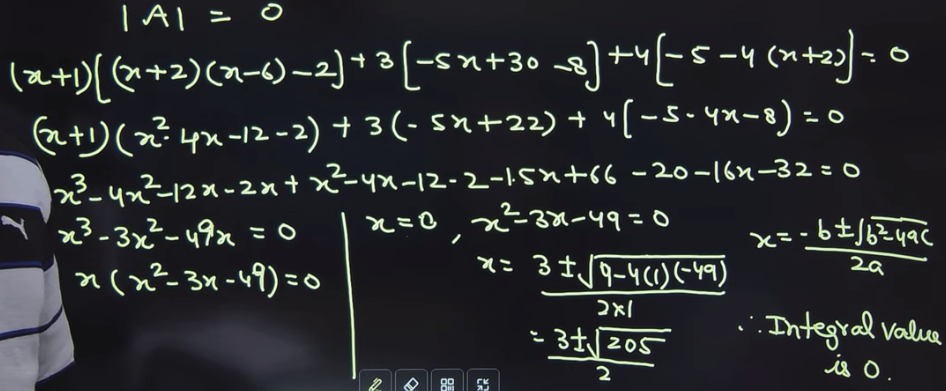 |A| = 0
(x+1)[(x+2)(x-6)-2] + 3[-5x+30-8] + 4[-5-4(x+2)] = 0
(x+1)(x²-4x-12-2) + 3(-5x+22) + 4[-5-4x-8) = 0
x³-4x²-12x-2x+x²-4x-12-2-15x+66-20-16x-32=0
x³-3x²-49x = 0
x(x²-3x-49)=0
x=0, x²-3x-49=0
x = 3±√9-4(1)(-49) / 2×1
= 3±√205 / 2
x = -b±√b²-4ac / 2a
∴ Integral value
is 0.